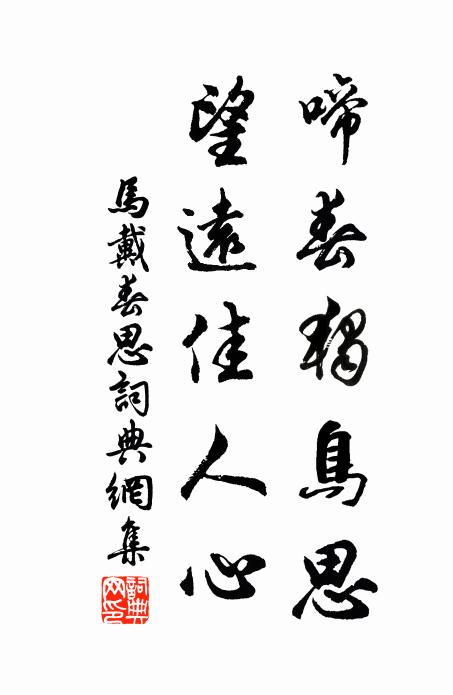 啼春獨鳥思
望遠佳人心
馬戴春思詞典網集